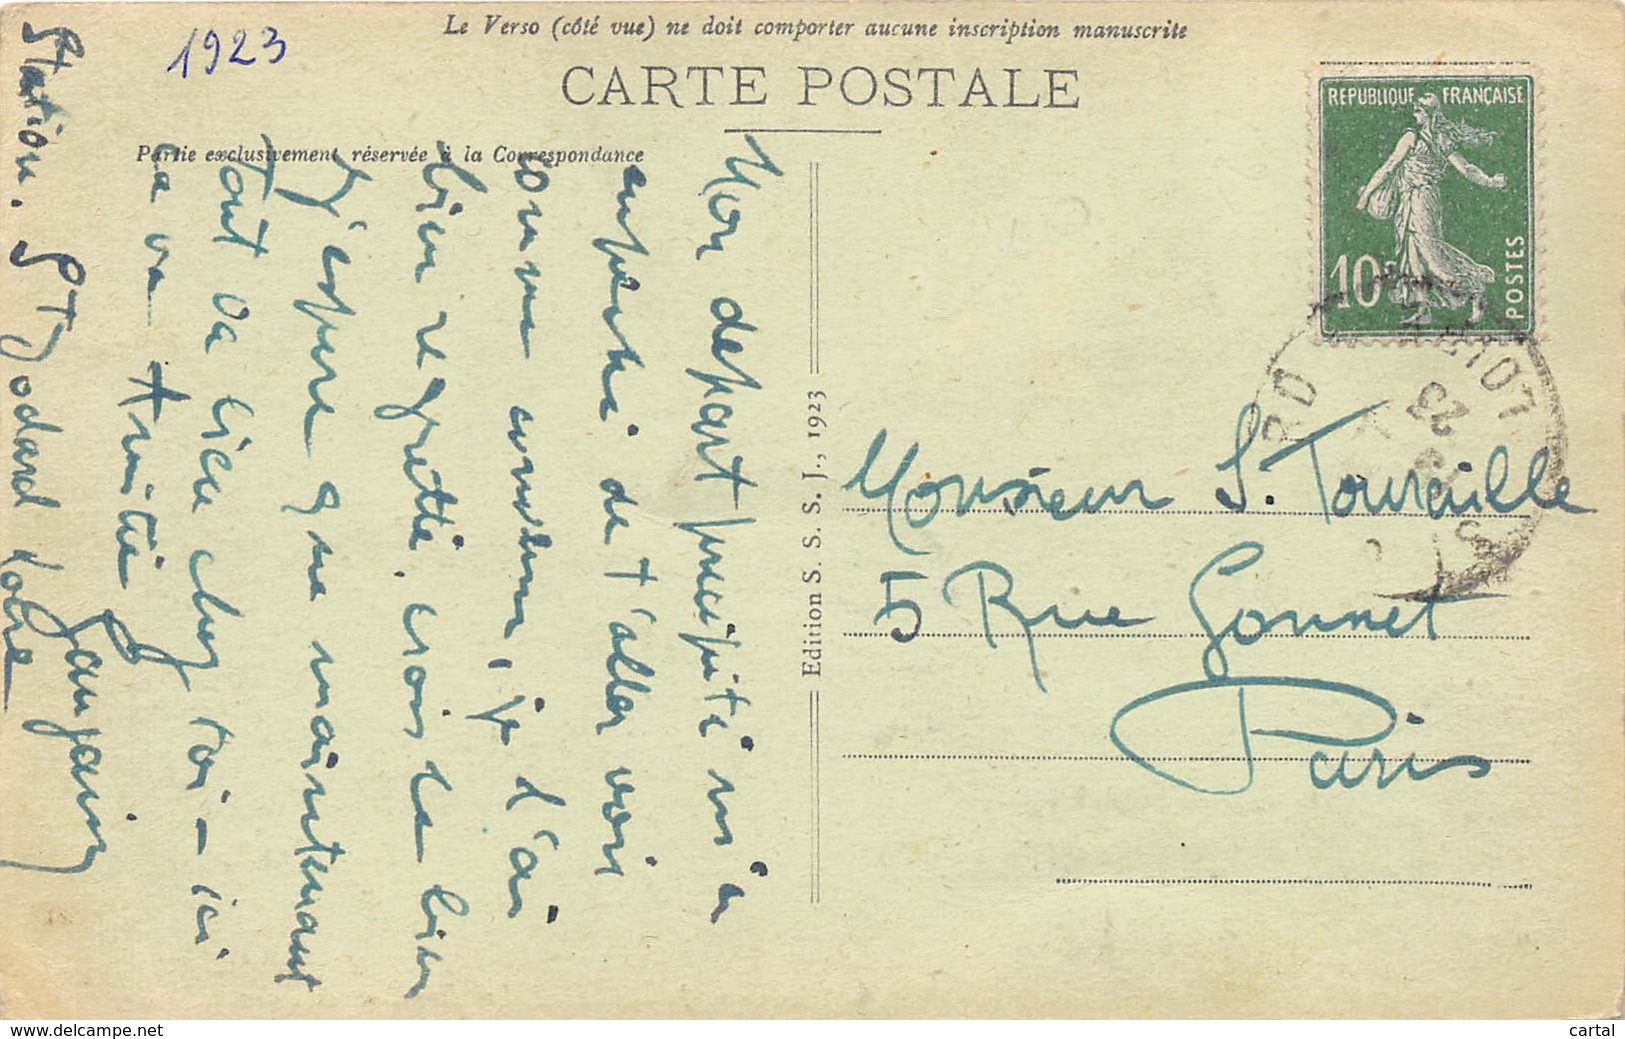 1923
Le Verso (côté vue) ne doit comporter aucune inscription manuscrite
CARTE POSTALE
Partie exclusivement réservée à la Correspondance
REPUBLIQUE FRANÇAISE
10c
POSTES
Mon départ précipité m'a
empêché de t'aller voir
comme convenu, je l'ai
bien regretté, crois le bien
J'espère que maintenant
tout va bien chez toi - ici
ça va Amitié
Edition S. S. S. J., 1923
Monsieur S. Touraille
5 Rue Gonnet
Paris
www.delcampe.net
cartal